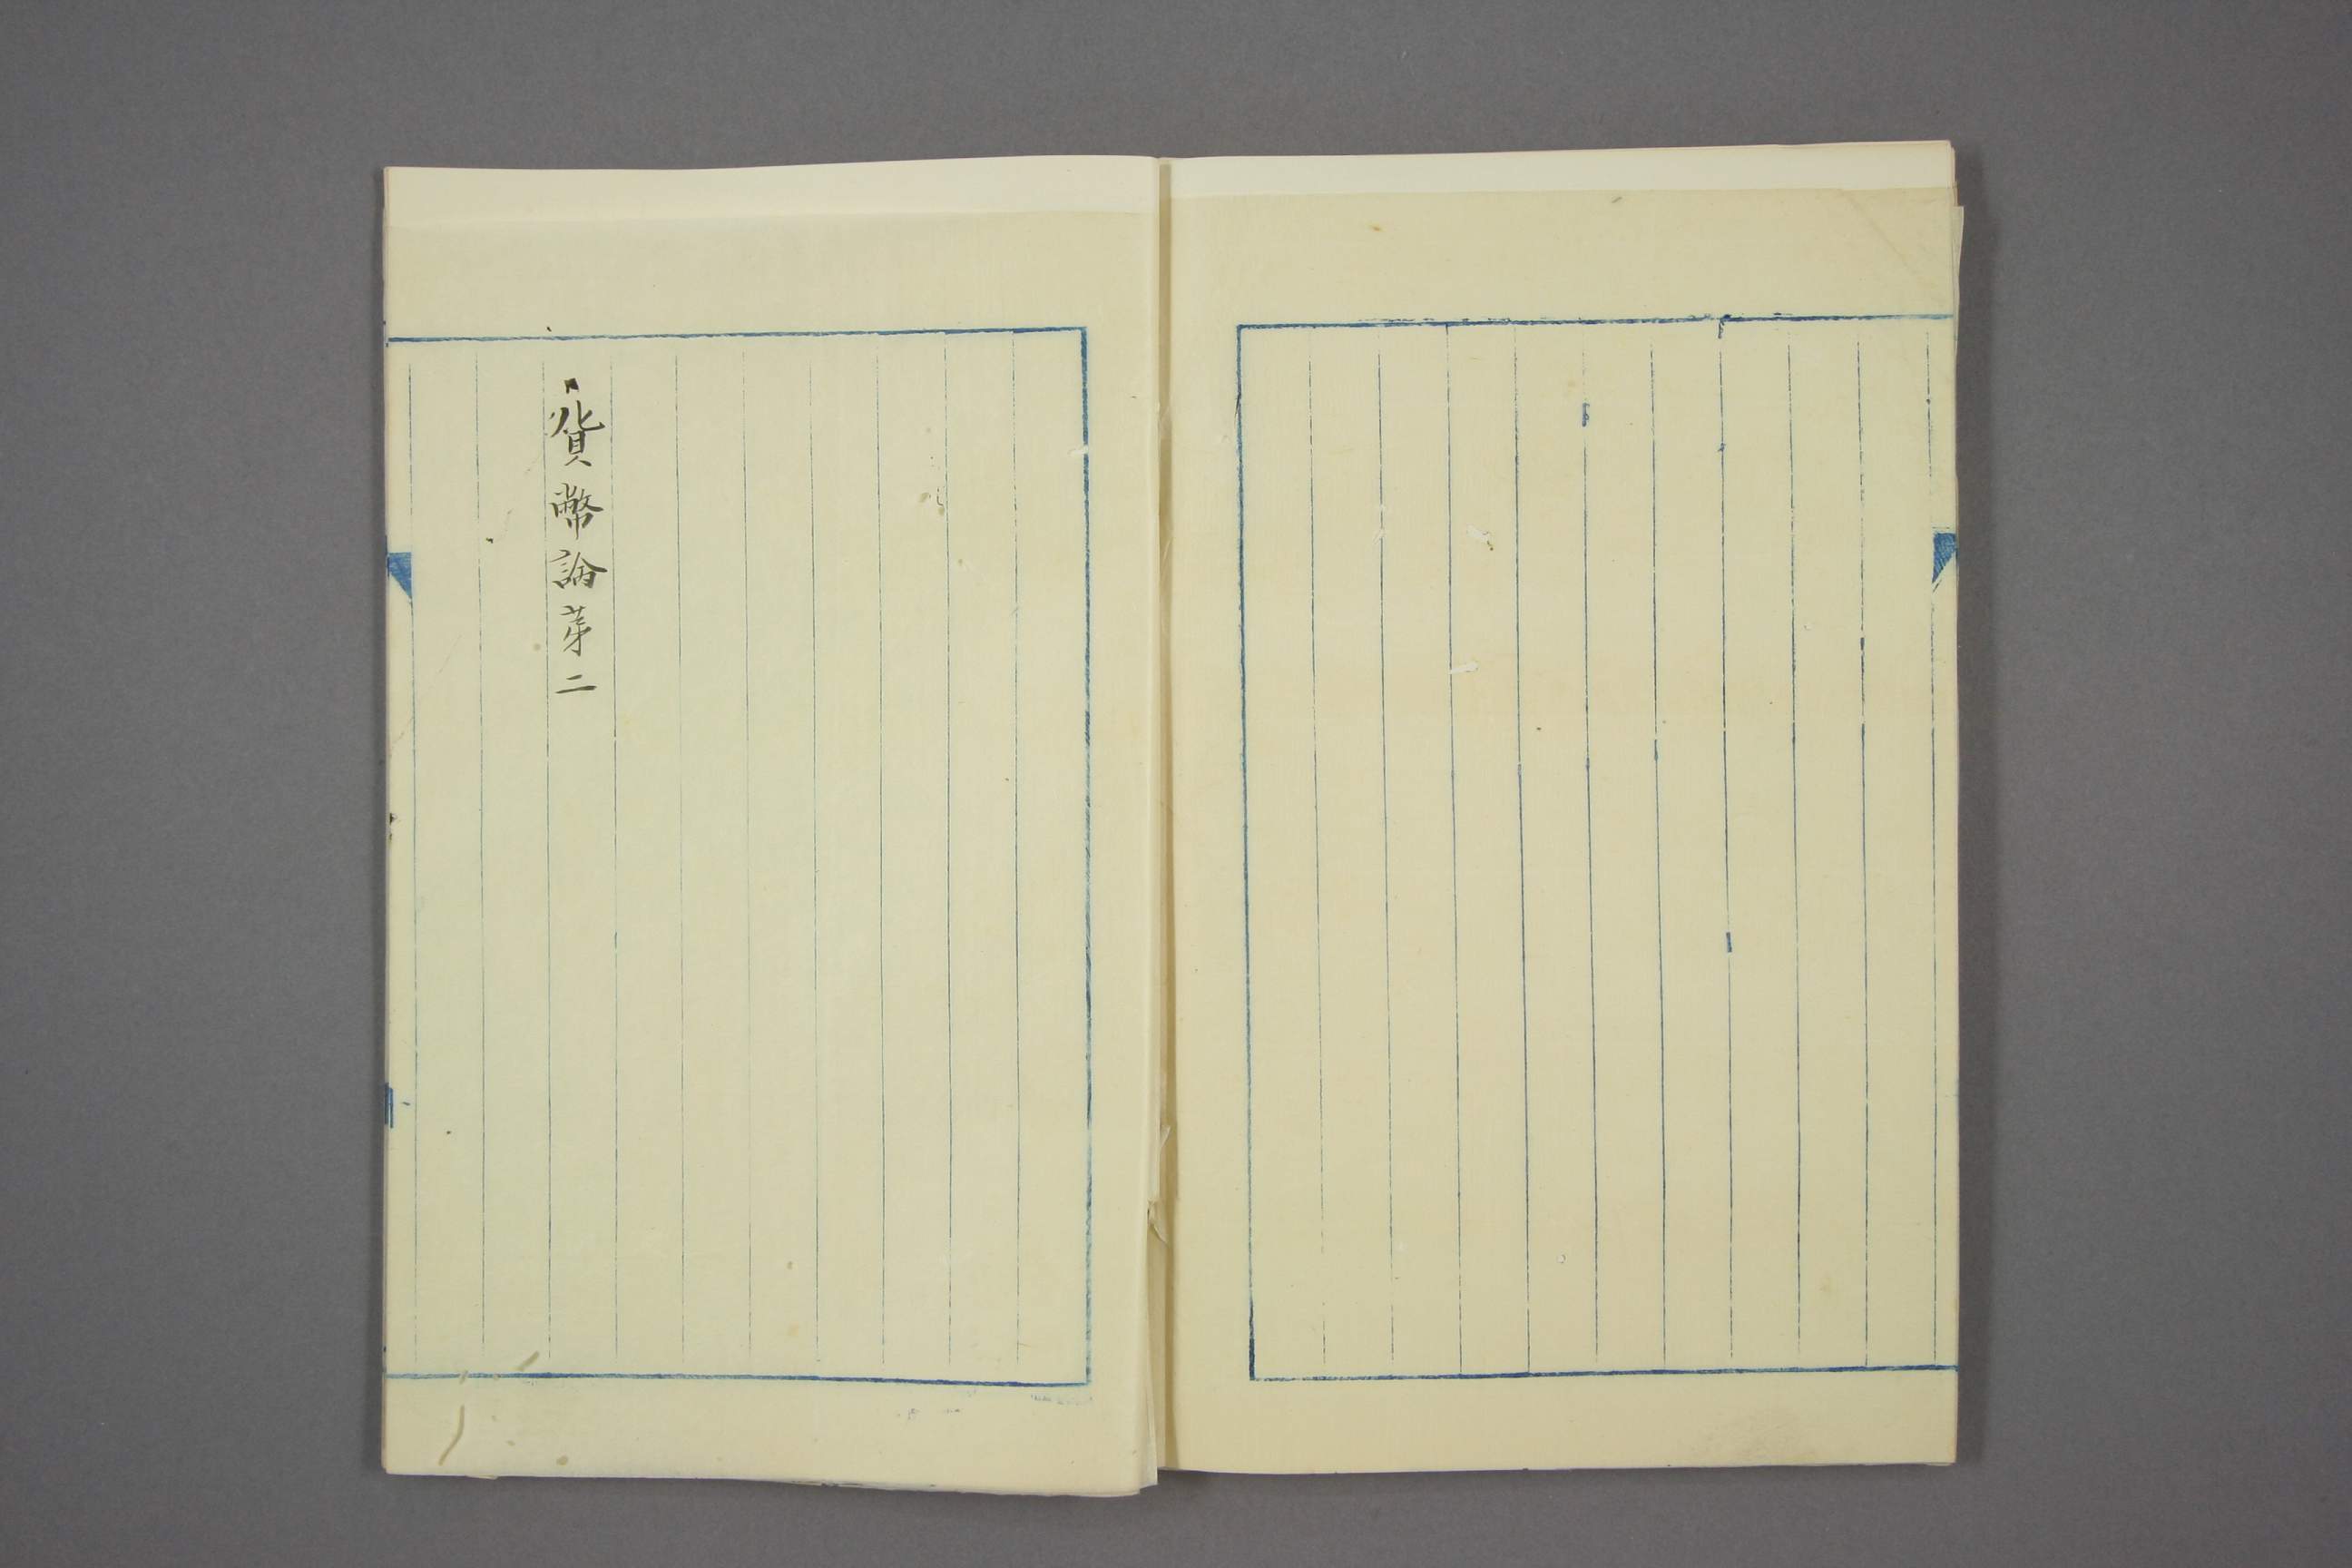 貨幣論芽二